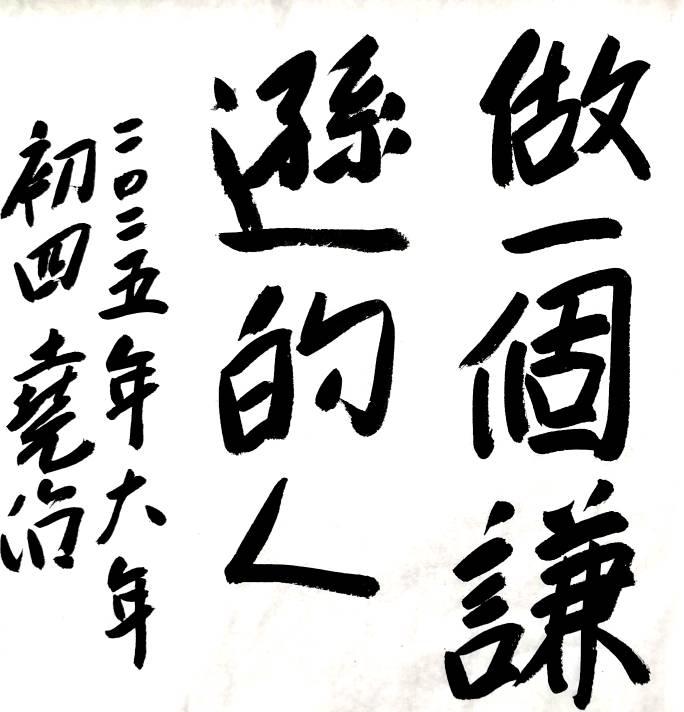 做一個謙
遜的人
二〇二五年大年
初四堯治